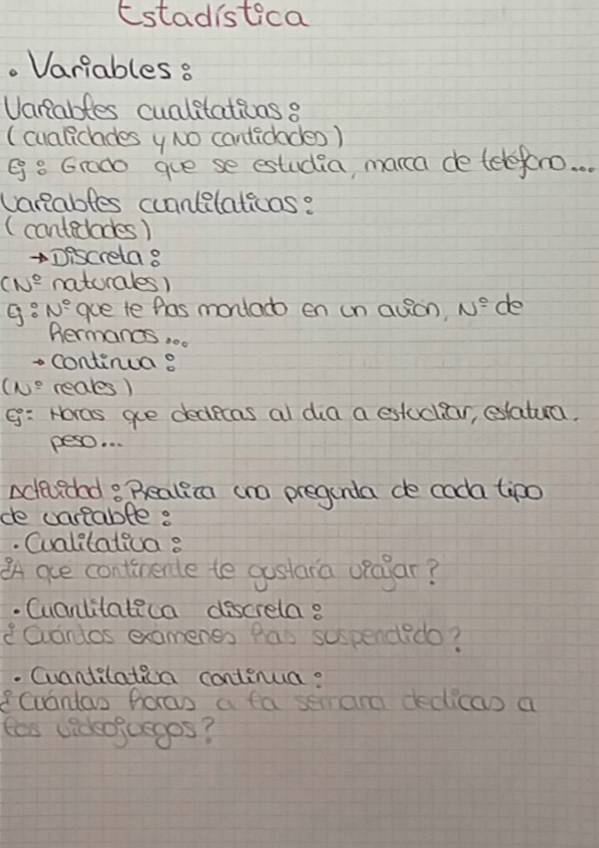 Estadística
• Variables:
Variables cualitativas:
(cualidades y NO cantidades)
Ej: Grado que se estudia, marca de teléfono...
Variables cuantitativas:
(cantidades)
→ Discreta:
(Nº naturales)
Ej: Nº que te has montado en un avión, Nº de
hermanos...
→ continua:
(Nº reales)
Ej: Horas que dedicas al dia a estudiar, estatura.
peso...
Actividad: Realiza una pregunta de cada tipo
de variable:
• Cualitativa:
¿A que continente te gustaría viajar?
• Cuantitativa discreta:
¿Cuántos examenes has suspendido?
• Cuantitativa continua:
¿Cuántas horas a la semana dedicas a
los videojuegos?